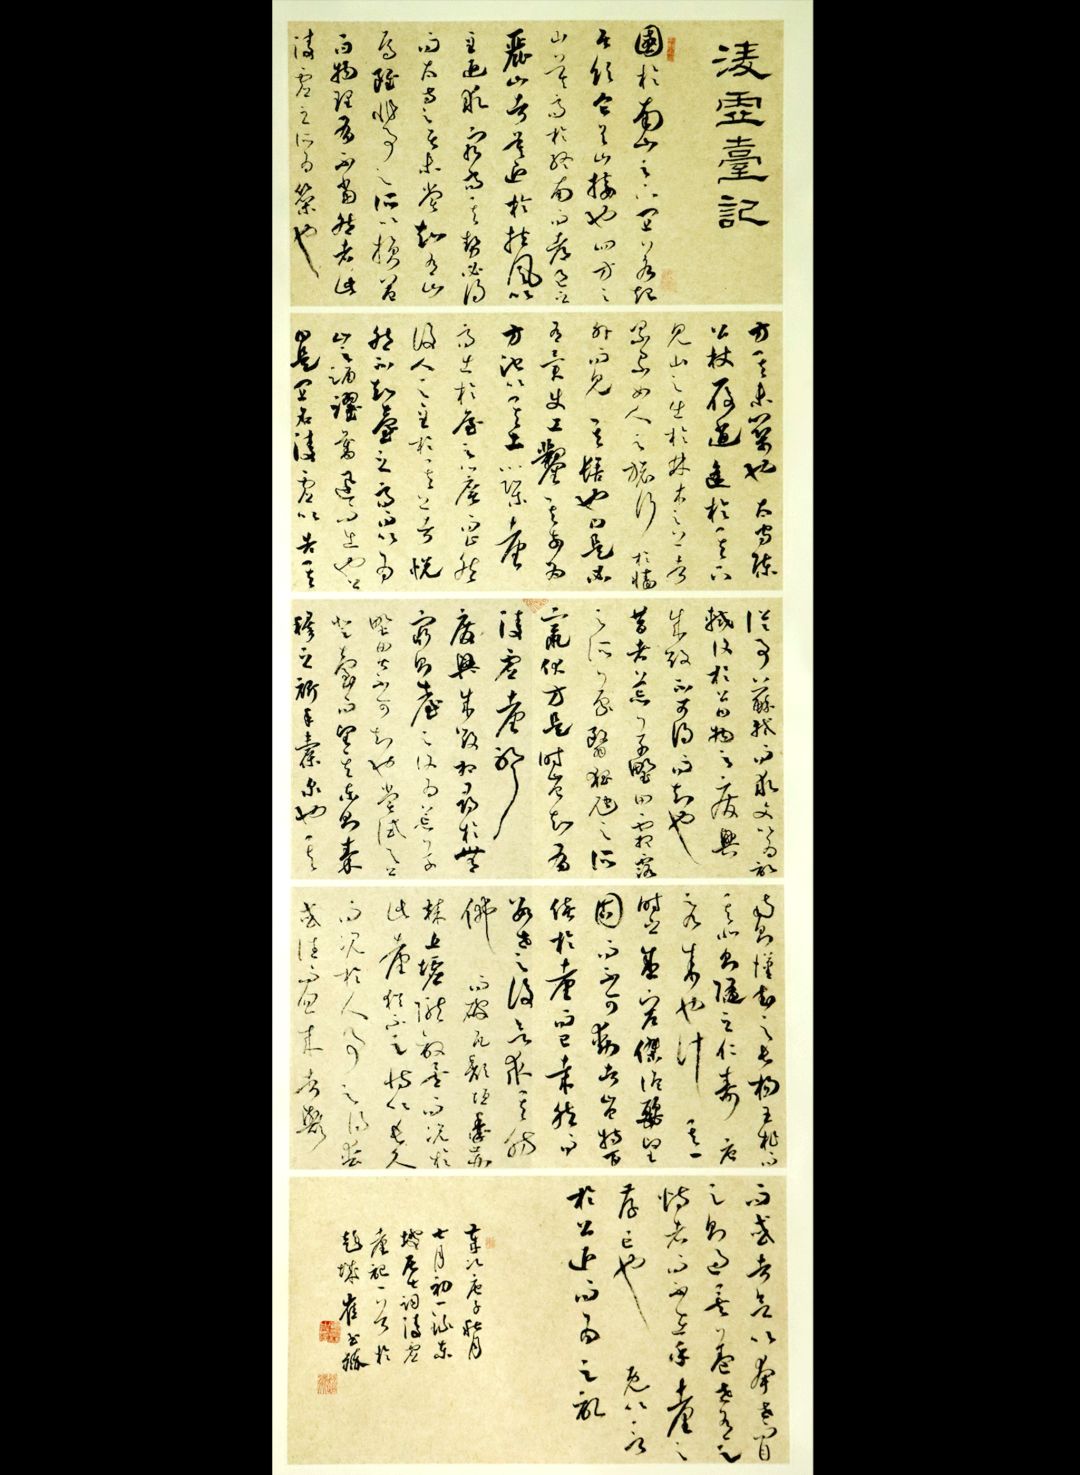 凌虛臺記
國於南山之下宜若起
居飲食與山接也四方之
山莫高於終南而都邑之
麗山者莫近於扶風以
至近求最高其勢必得
而太守之居未嘗知有山
焉雖非事之所以損益
而物理有不當然者此
凌虛之所為築也
方其未築也太守陳
公杖屨逍遙於其下
見山之出於林木之上者
纍纍如人之旅行於牆
外而見其髻也曰是必
有異使工鑿其前為
方池以其土築臺
高出於屋之簷而止然
後人之至於其上者恍
然不知臺之高而以為
山之踴躍奮迅而出也公
曰是宜名凌虛以告其
從事蘇軾而求文以為記
軾復於公曰物之廢興
成毀不可得而知也
昔者荒草野田霜露
之所蒙翳狐虺之所
竄伏方是時豈知有
凌虛臺耶
廢興成毀相尋於無
窮則臺之復為荒草
野田皆不可知也嘗試與公
登臺而望其東則秦
穆之祈年橐泉也其
南則漢武之長楊五柞而
其北則隋之仁壽唐
之九成也計其一
時之盛宏傑詭麗堅
固而不可動者豈特百
倍於臺而已哉然而
數世之後欲求其彷
彿而破瓦頹垣禾黍荊
棘丘墟隴畝矣而況於
此臺猶不足恃以長久
而況於人事之得喪
忽往而忽來者歟
而或者欲以夸世而自
足則過矣蓋世有足
恃者而不在乎臺之
存亡也既以言
於公退而為之記
歲次庚子秋月
七月初一錄東
坡居士詞凌虛
臺記一首於
趙城崔